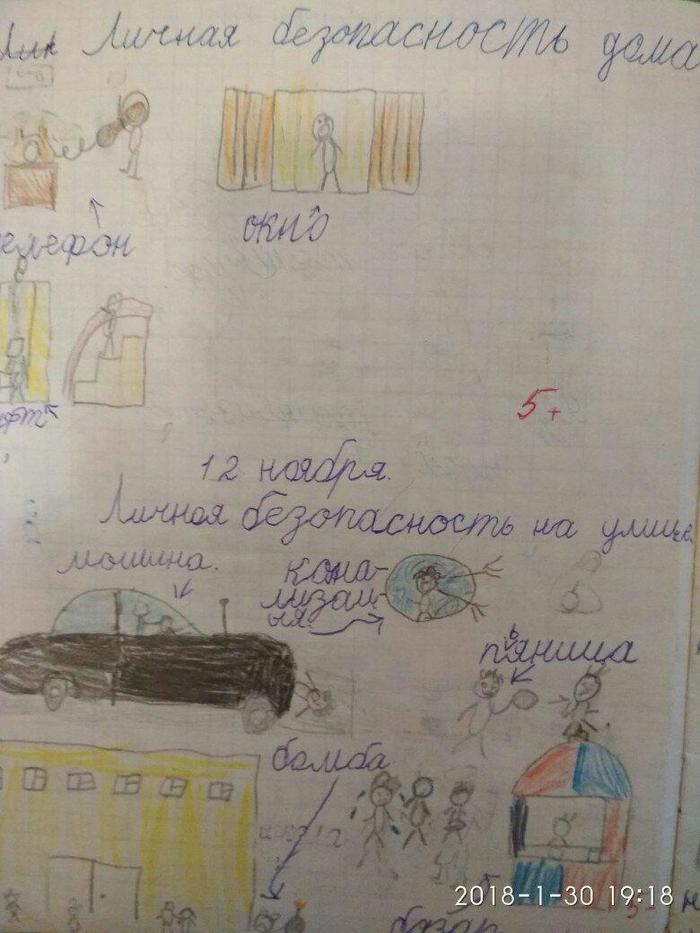 Личная безопасность дома
елефон
окно
фт
5+
12 ноября.
Личная безопасность на улице.
мошина.
кона-
лизац-
ыя.
пьяница
бомба
базар
2018-1-30 19:18
5-